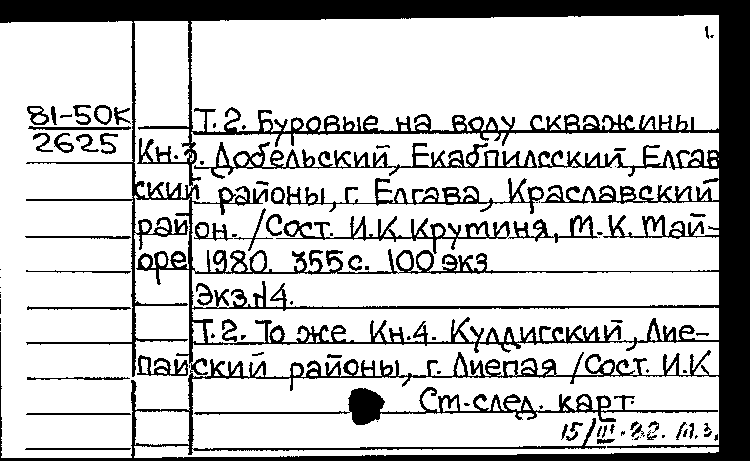 1.
81-50К
2625
Т.2. Буровые на воду скважины
Кн.3. Добельский, Екабпилсский, Елгав
ский районы, г. Елгава, Краславский
район. /Сост. И.К. Крутиня, М.К. Май-
оре 1980. 355с. 100 экз
Экз.N4.
Т.2. То же. Кн.4. Кулдигский, Лие-
пайский районы, г. Лиепая /Сост. И.К
См.след. карт
15/III-82. М.З.